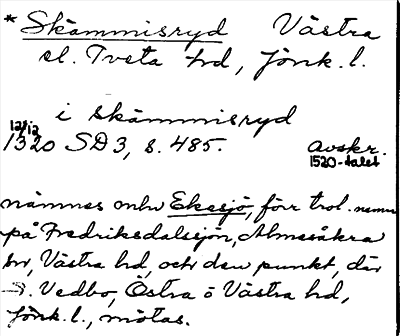 * Skämmisryd Västra
el. Tveta hd, Jönk. l.
i skämmisryd
12/12
1320 SD 3, s. 485. Avskr.
1520-talet
nämnes mlw Ekesjö, förr trol. namn
på Fredriksdalssjön, Almesåkra
sn, Västra hd, och den punkt, där
S. Vedbo, Östra o Västra hd,
Jönk. l., mötas.